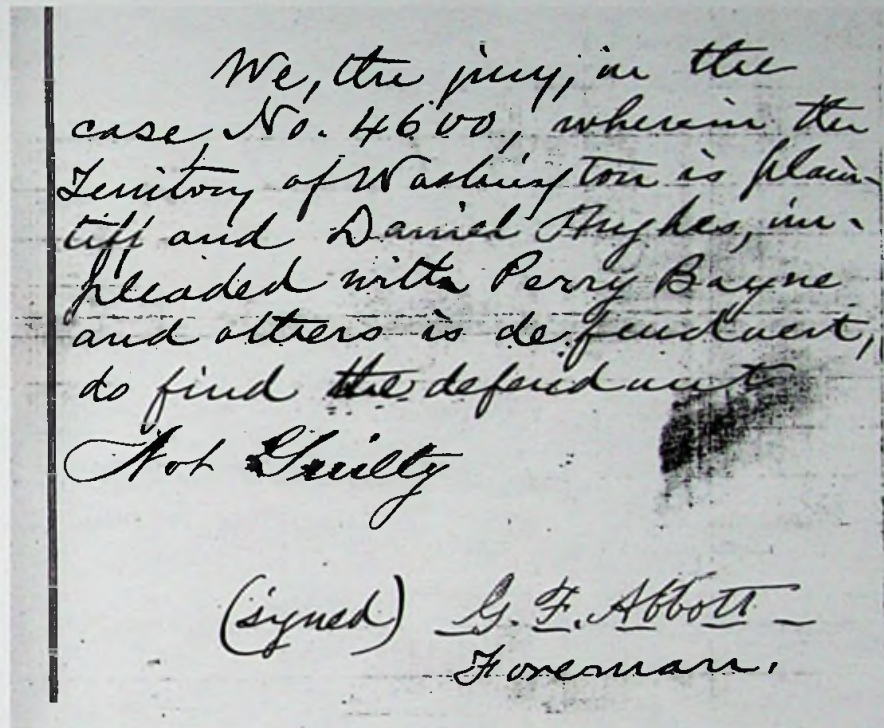 We, the jury, in the
case, No. 4600, wherein the
Territory of Washington is plain-
tiff and Daniel Hughes, im-
pleaded with Perry Bayne
and others is defendant,
do find the defendant
Not Guilty
(signed) G. F. Abbott
Foreman.